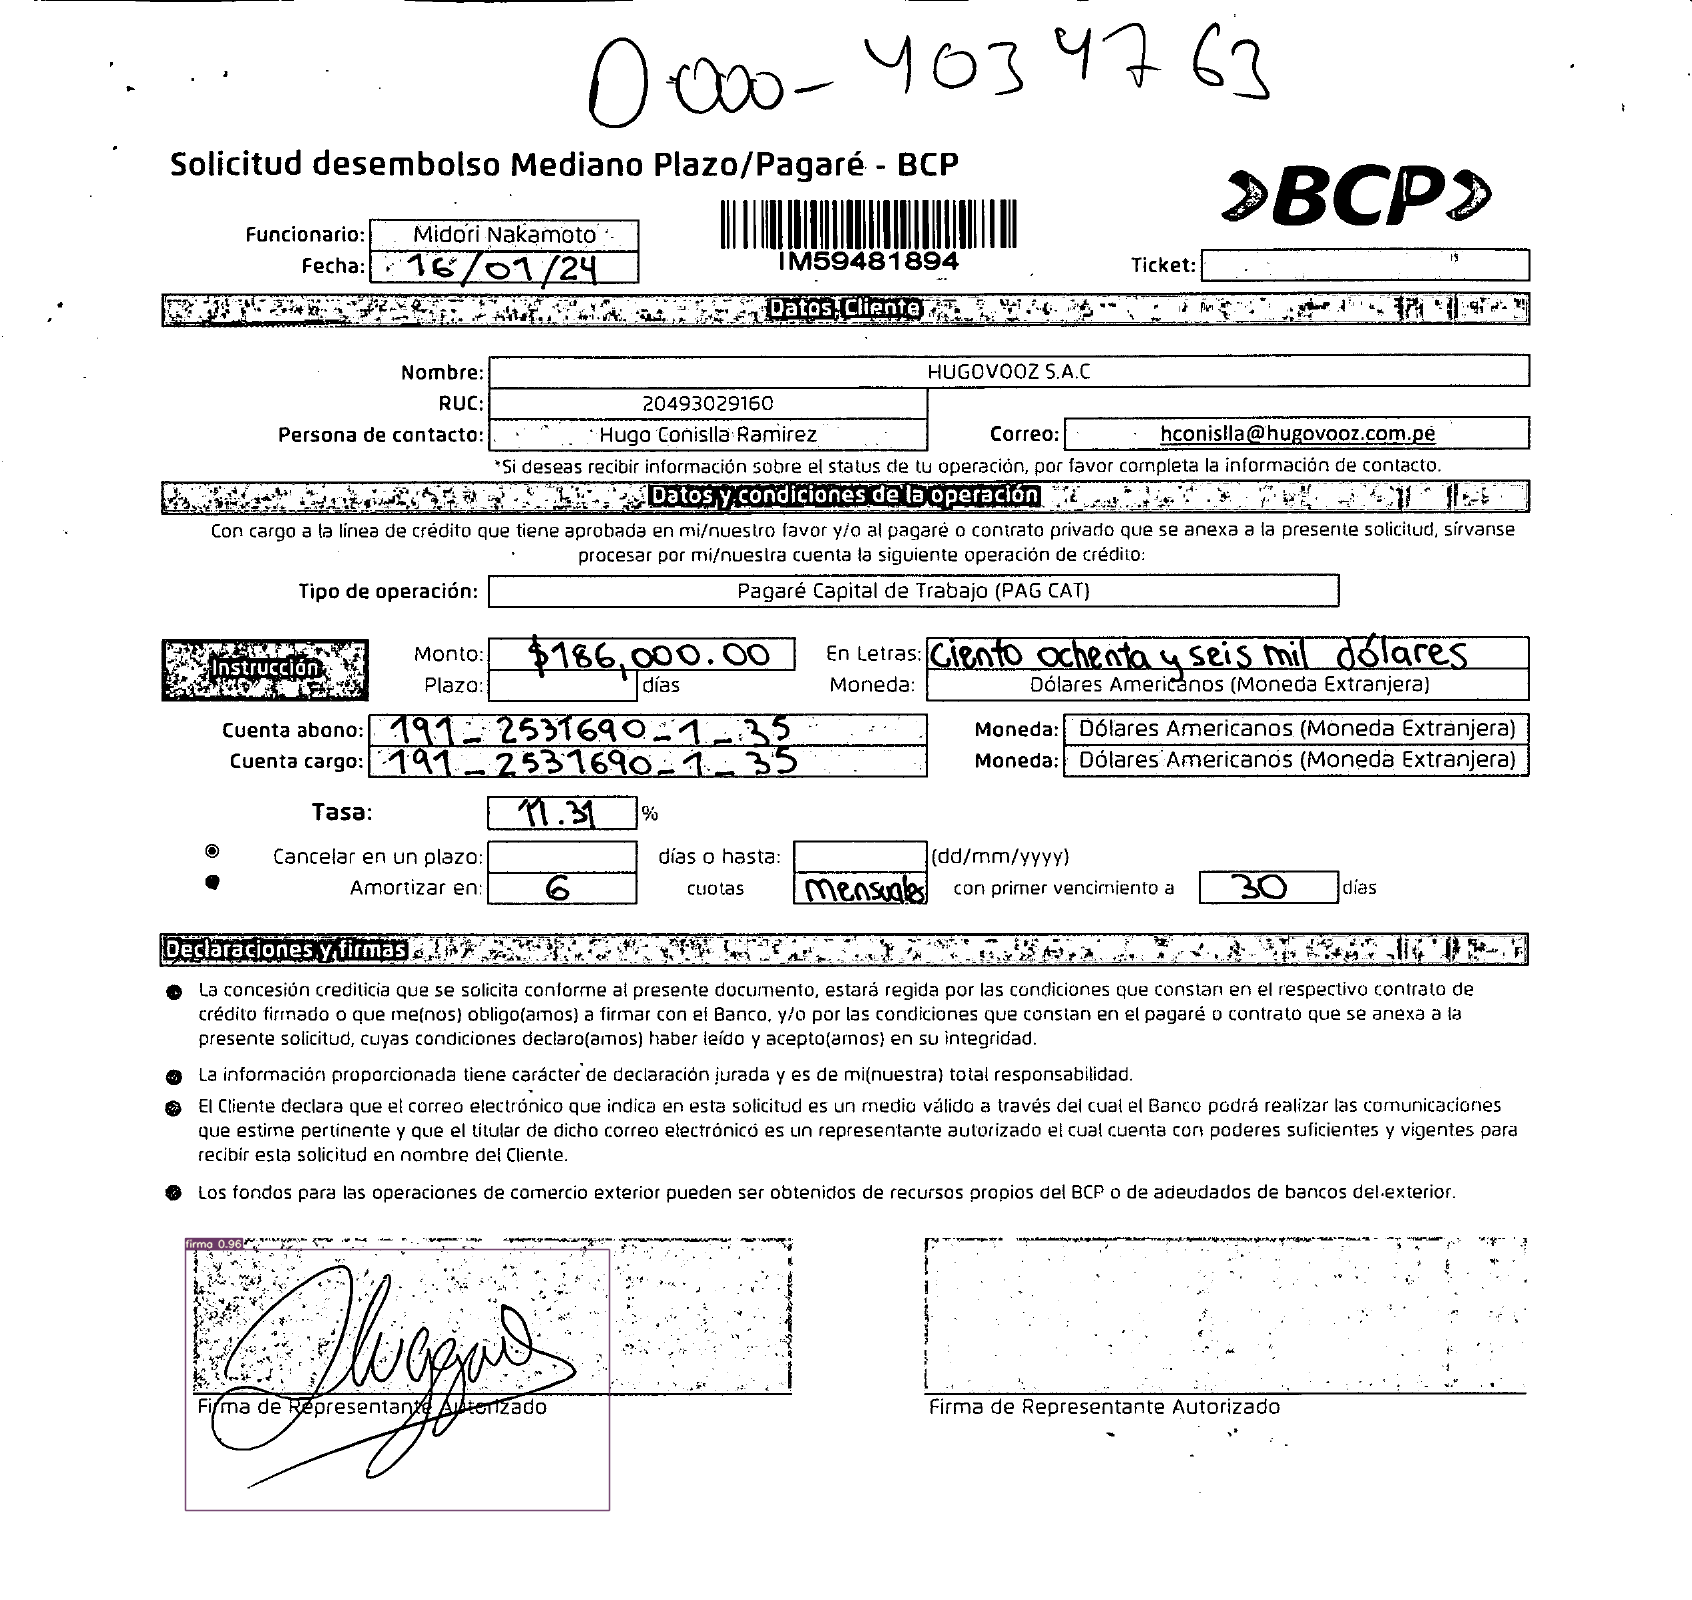 D000-4034763
Solicitud desembolso Mediano Plazo/Pagaré - BCP
»BCP»
Funcionario: Midori Nakamoto
IM59481894
Fecha: 16/01/24
Ticket:
Datos Cliente
Nombre: HUGOVOOZ S.A.C
RUC: 20493029160
Persona de contacto: Hugo Conislla Ramirez Correo: hconislla@hugovooz.com.pe
*Si deseas recibir información sobre el status de tu operación, por favor completa la información de contacto.
Datos y condiciones de la operación
Con cargo a la línea de crédito que tiene aprobada en mi/nuestro favor y/o al pagaré o contrato privado que se anexa a la presente solicitud, sírvanse
procesar por mi/nuestra cuenta la siguiente operación de crédito:
Tipo de operación: Pagaré Capital de Trabajo (PAG CAT)
Instrucción
Monto: $186,000.00 En Letras: Ciento ochenta y seis mil dólares
Plazo: días Moneda: Dólares Americanos (Moneda Extranjera)
Cuenta abono: 191-2531690-1-35 Moneda: Dólares Americanos (Moneda Extranjera)
Cuenta cargo: 191-2531690-1-35 Moneda: Dólares Americanos (Moneda Extranjera)
Tasa: 11.31 %
Cancelar en un plazo: días o hasta: (dd/mm/yyyy)
Amortizar en: 6 cuotas mensuales con primer vencimiento a 30 días
Declaraciones y firmas
La concesión crediticia que se solicita conforme al presente documento, estará regida por las condiciones que constan en el respectivo contrato de
crédito firmado o que me(nos) obligo(amos) a firmar con el Banco, y/o por las condiciones que constan en el pagaré o contrato que se anexa a la
presente solicitud, cuyas condiciones declaro(amos) haber leído y acepto(amos) en su integridad.
La información proporcionada tiene carácter de declaración jurada y es de mi(nuestra) total responsabilidad.
El Cliente declara que el correo electrónico que indica en esta solicitud es un medio válido a través del cual el Banco podrá realizar las comunicaciones
que estime pertinente y que el titular de dicho correo electrónico es un representante autorizado el cual cuenta con poderes suficientes y vigentes para
recibir esta solicitud en nombre del Cliente.
Los fondos para las operaciones de comercio exterior pueden ser obtenidos de recursos propios del BCP o de adeudados de bancos del exterior.
firma 0.96
Firma de Representante Autorizado
Firma de Representante Autorizado